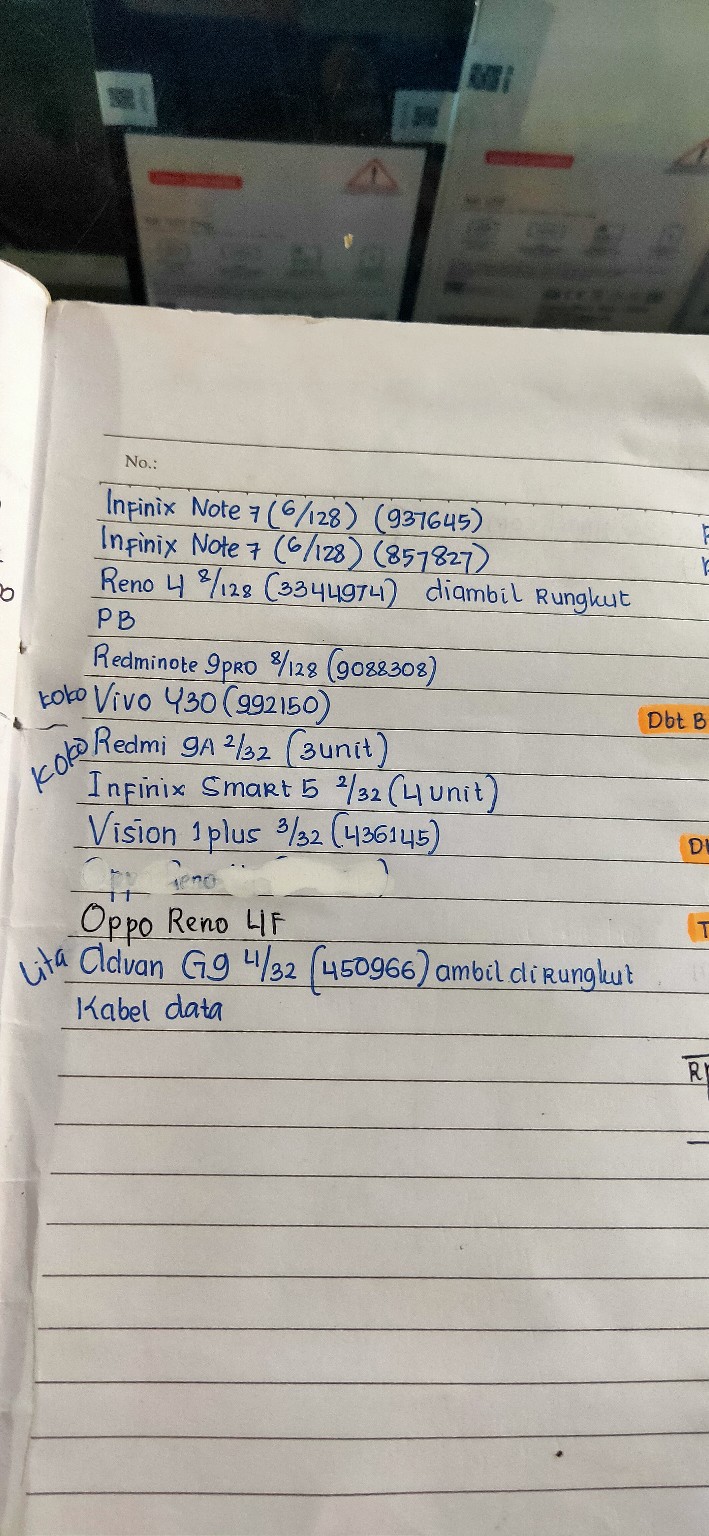 No.:
Infinix Note 7 (6/128) (937645)
Infinix Note 7 (6/128) (857827)
Reno 4 8/128 (3344974) diambil Rungkut
PB
Redminote 9PRO 8/128 (9088308)
koko Vivo Y30 (992150)
Dbt B
koko Redmi 9A 2/32 (3unit)
Infinix Smart 5 2/32 (4 unit)
Vision 1plus 3/32 (436145)
Oppo Reno 4F
T
Lita Advan G9 4/32 (450966) ambil diRungkut
Kabel data